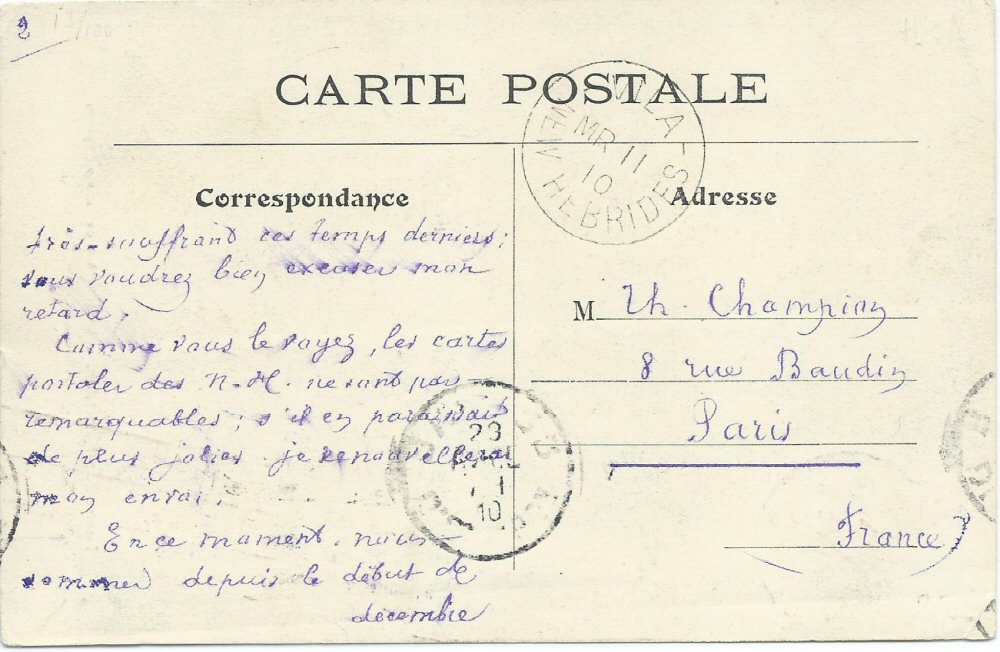 2
CARTE POSTALE
VILA
NEW HEBRIDES
MR 11
10
Correspondance
Adresse
très-souffrant ces temps derniers;
vous voudrez bien excuser mon
retard.
Comme vous le voyez, les cartes
postales des N-H. ne sont pas
remarquables; s'il en paraissait
de plus jolies je renouvellerai
mon envoi.
En ce moment, nous
sommes depuis le début de
décembre
M. Th. Champion
8 rue Baudin
Paris
France
23
10